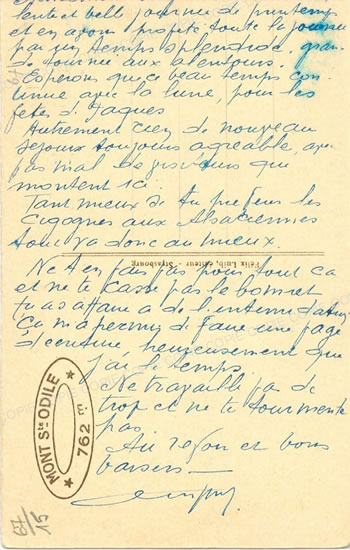 lente et belle journée de printemps
et en avons profité toute la journée
par un temps splendide, gran
de tournée aux alentours.
Esperons que ce beau temps con
tinue avec la lune, pour les
fêtes de Paques
Autrement rien de nouveau
sejour toujours agréable, avec
pas mal de visiteurs que
montent ici.
Tant mieux si tu préferes les
cigognes aux Alsaciennes
tout va donc au mieux.
Félix Luib, éditeur - Strasbourg
Ne t'en fais pas pour tout ca
et ne te casse pas le bonnet
tu as affaire a de l'
Ca m'a permis de faire une page
d'ecriture, heureusement que
j'ai le temps
Ne travaille pas de
trop et ne te tourmente
pas
Au revoir et bons
baisers —
MONT Ste ODILE
762 m
67/15
COPIE